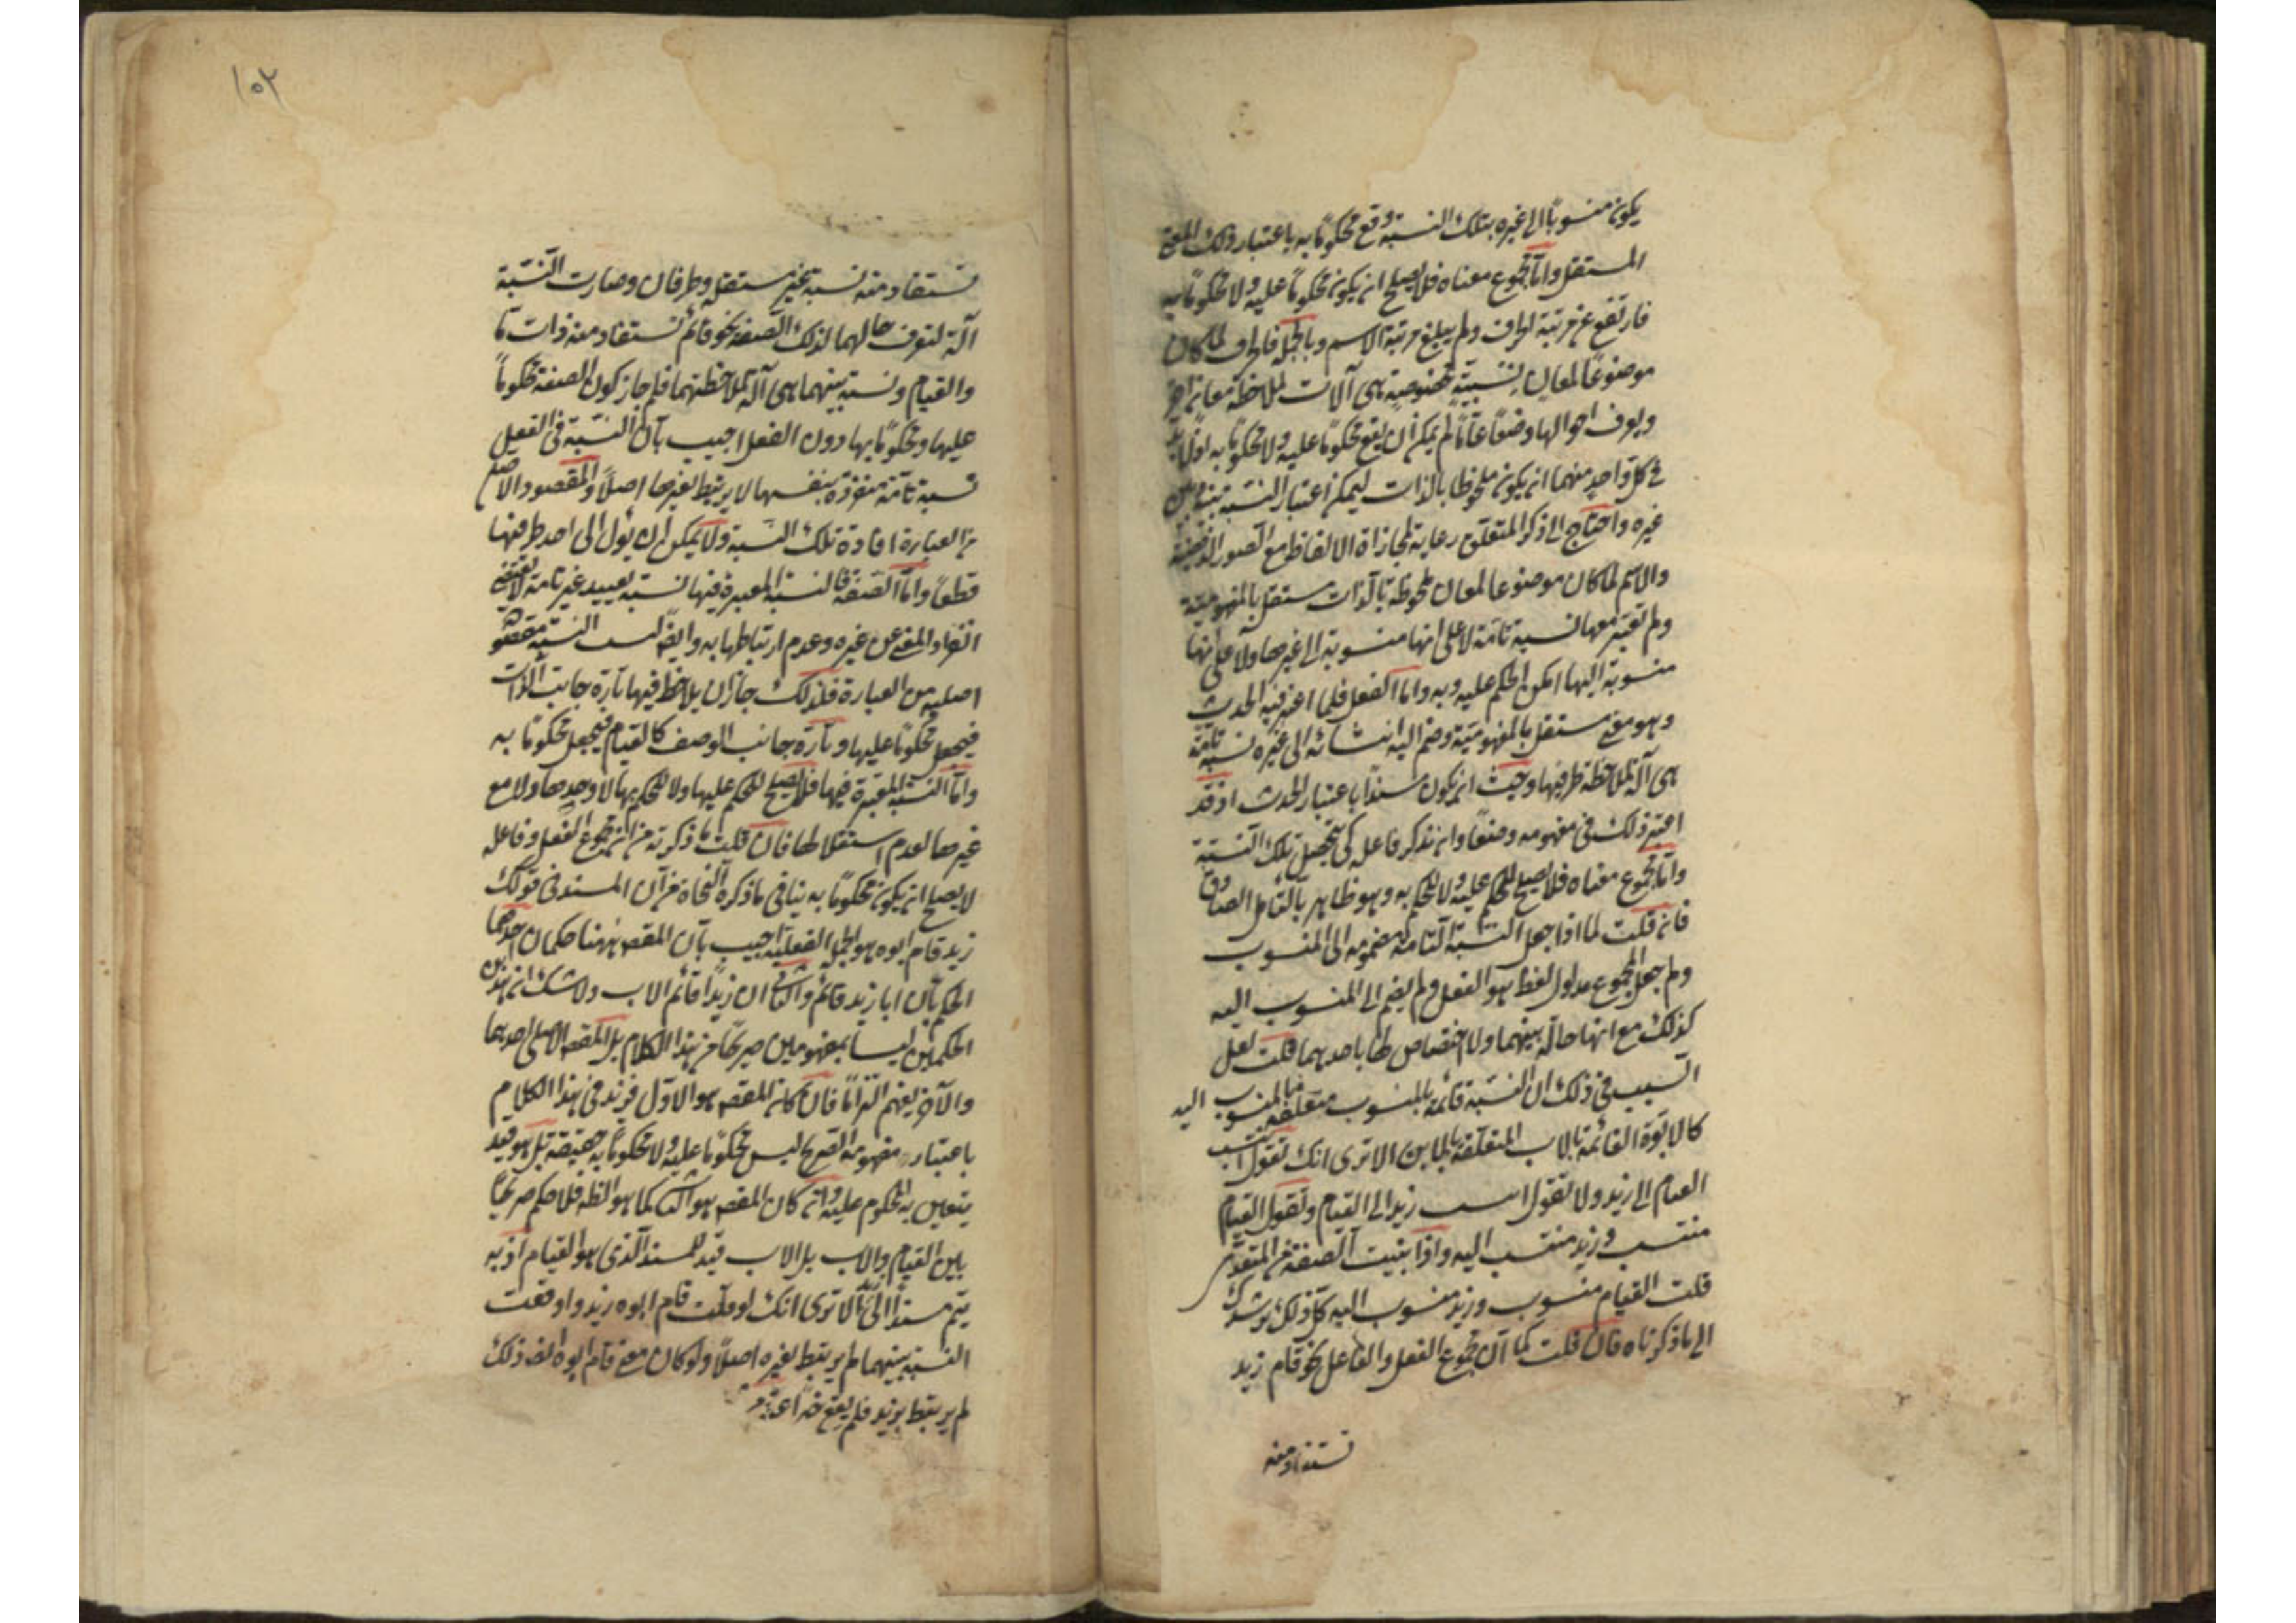 يكون منسوبًا الى غيره بتلك النسبة وقع محكومًا به باعتبار ذلك المعنى
المستقل واما مجموع معناه فلا يصلح ان يكون محكومًا عليه ولا محكومًا به
فارتفع عن مرتبة الحرف ولم يبلغ مرتبة الاسم وبالجملة فالحرف لما كان
موضوعًا لمعان نسبية مخصوصة هى آلات لملاحظة معان اخر
ويعرف احوالها وضعًا عامًا لم يمكن ان يقع محكومًا عليه ولا محكومًا به اذ لابد
فى كل واحد منهما ان يكون ملحوظا بالذات ليمكن اعتبار النسبة بينه وبين
غيره واحتاج الى ذكر المتعلق رعاية لمحاذاة الالفاظ مع الصور الذهنية
والاسم لما كان موضوعا لمعان ملحوظة بالذات مستقل بالمفهومية
ولم تعتبر معها نسبة تامة لا على انها منسوبة الى غيرها ولا على انها
منسوبة اليها امكن الحكم عليه وبه واما الفعل فلما اعتبر فيه الحدث
وهو معنى مستقل بالمفهومية وضم اليه انتسابه الى غيره نسبة تامة
هى آلة لملاحظة طرفيها وجب ان يكون مسندًا باعتبار الحدث اذ قد
اعتبر ذلك فى مفهومه وضعًا وان يذكر فاعله كى يتحصل تلك النسبة
واما مجموع معناه فلا يصلح للحكم عليه ولا للحكم به وهو ظاهر بالتامل الصادق
فان قلت لما اذا جعل النسبة التامة مضمومة الى المنسوب
ولم جعل المجموع مدلول لفظ هو الفعل ولم يضم الى المنسوب اليه
كذلك مع انها حالة بينهما ولا اختصاص لها باحدهما قلت لعل
السبب فى ذلك ان النسبة قائمة بالمنسوب متعلقة بالمنسوب اليه
كالابوة القائمة بالاب المتعلقة بالابن الا ترى انك تقول انتسب
القيام الى زيد ولا تقول انتسب زيد الى القيام وتقول القيام
منتسب وزيد منتسب اليه واذا بنيت الصفة من المتعدى
قلت القيام منسوب وزيد منسوب اليه كل ذلك يرشدك
الى ما ذكرناه فان قلت كما ان مجموع الفعل والفاعل نحو قام زيد
تستفاد منه
١٥٢
تستفاد منه نسبة غير مستقلة وطرفان وصارت النسبة
آلة لتعرف حالهما كذلك الصفة نحو قائم تستفاد منه ذات ما
والقيام ونسبة بينهما هى آلة لملاحظتهما فلم جاز كون الصفة محكوماً
عليها ومحكومًا بها دون الفعل اجيب بأن النسبة فى الفعل
نسبة تامة منفردة بنفسها لا يرتبط بغيرها اصلاً والمقصود الاصلى
من العبارة افادة تلك النسبة ولا يمكن ان يؤل الى احد طرفيها
قطعًا واما الصفة فالنسبة المعتبرة فيها نسبة تقييدية غير تامة لا تقتضى
انفراد المعنى عن غيره وعدم ارتباطها به وايضًا ليست النسبة مقصودة
اصلية من العبارة فلذلك جاز ان يلاحظ فيها تارة جانب الذات
فيجعل محكومًا عليها وتارة جانب الوصف كالقيام فيجعل محكومًا به
واما النسبة المعتبرة فيها فلا يصلح للحكم عليها ولا للحكم بها لا وحدها ولا مع
غيرها لعدم استقلالها فان قلت ما ذكرته من ان مجموع الفعل وفاعله
لا يصلح ان يكون محكومًا به ينافى ما ذكره النحاة من أن المسند فى قولك
زيد قام ابوه هو الجملة الفعلية اجيب بأن المقصد ههنا حكمان احدهما
الحكم بأن ابا زيد قائم والثانى ان زيدًا قائم الاب ولا شك ان هذين
الحكمين ليسا بمفهومين صريحًا من هذا الكلام بل المقصد الاصلى احدهما
والآخر يفهم التزامًا فان كان المقصد هو الاول فزيد فى هذا الكلام
باعتبار مفهومه الصريح ليس محكومًا عليه ولا محكومًا به حقيقة بل هو قيد
يتعين به المحكوم عليه وان كان المقصد هو الثانى كما هو الظاهر فلا حكم صريحًا
بين القيام والاب بل الاب قيد للمسند الذى هو القيام اذ به
يتم مسندًا الى زيد الا ترى انك لو قلت قام ابوه زيد واوقعت
النسبة بينهما لم يرتبط بغيره اصلاً ولو كان معنى قام ابوه ايضا ذلك
لم يرتبط بزيد فلم يقع خبرًا عنه